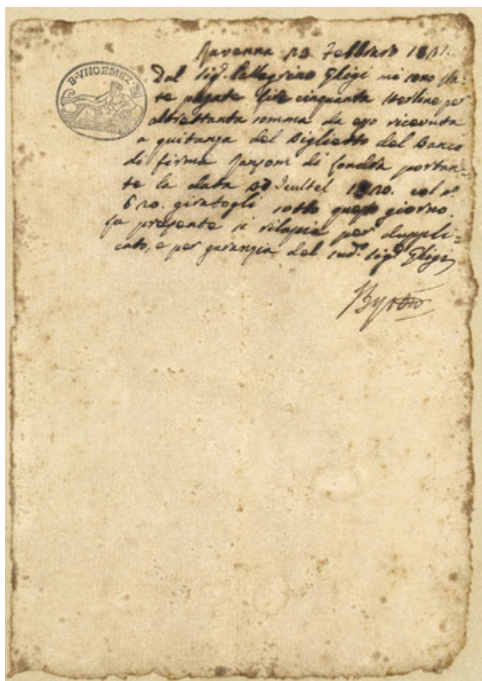 B. VNOEMEZ
Ravenna 23 Febbraro 1821.
Dal Sig.r Pellegrino Ghigi mi sono sta-
te pagate lire cinquanta sterline per
altrettanta somma da esso ricevuta
a quitanza del Biglietto del Banco
di firma Ransom di Londra portan-
te la data 1820. col n.
620. giratogli sotto questo giorno.
La presente si rilascia per duppli-
cato, e per garanzia del sud.o Sig.r Ghigi
Byron